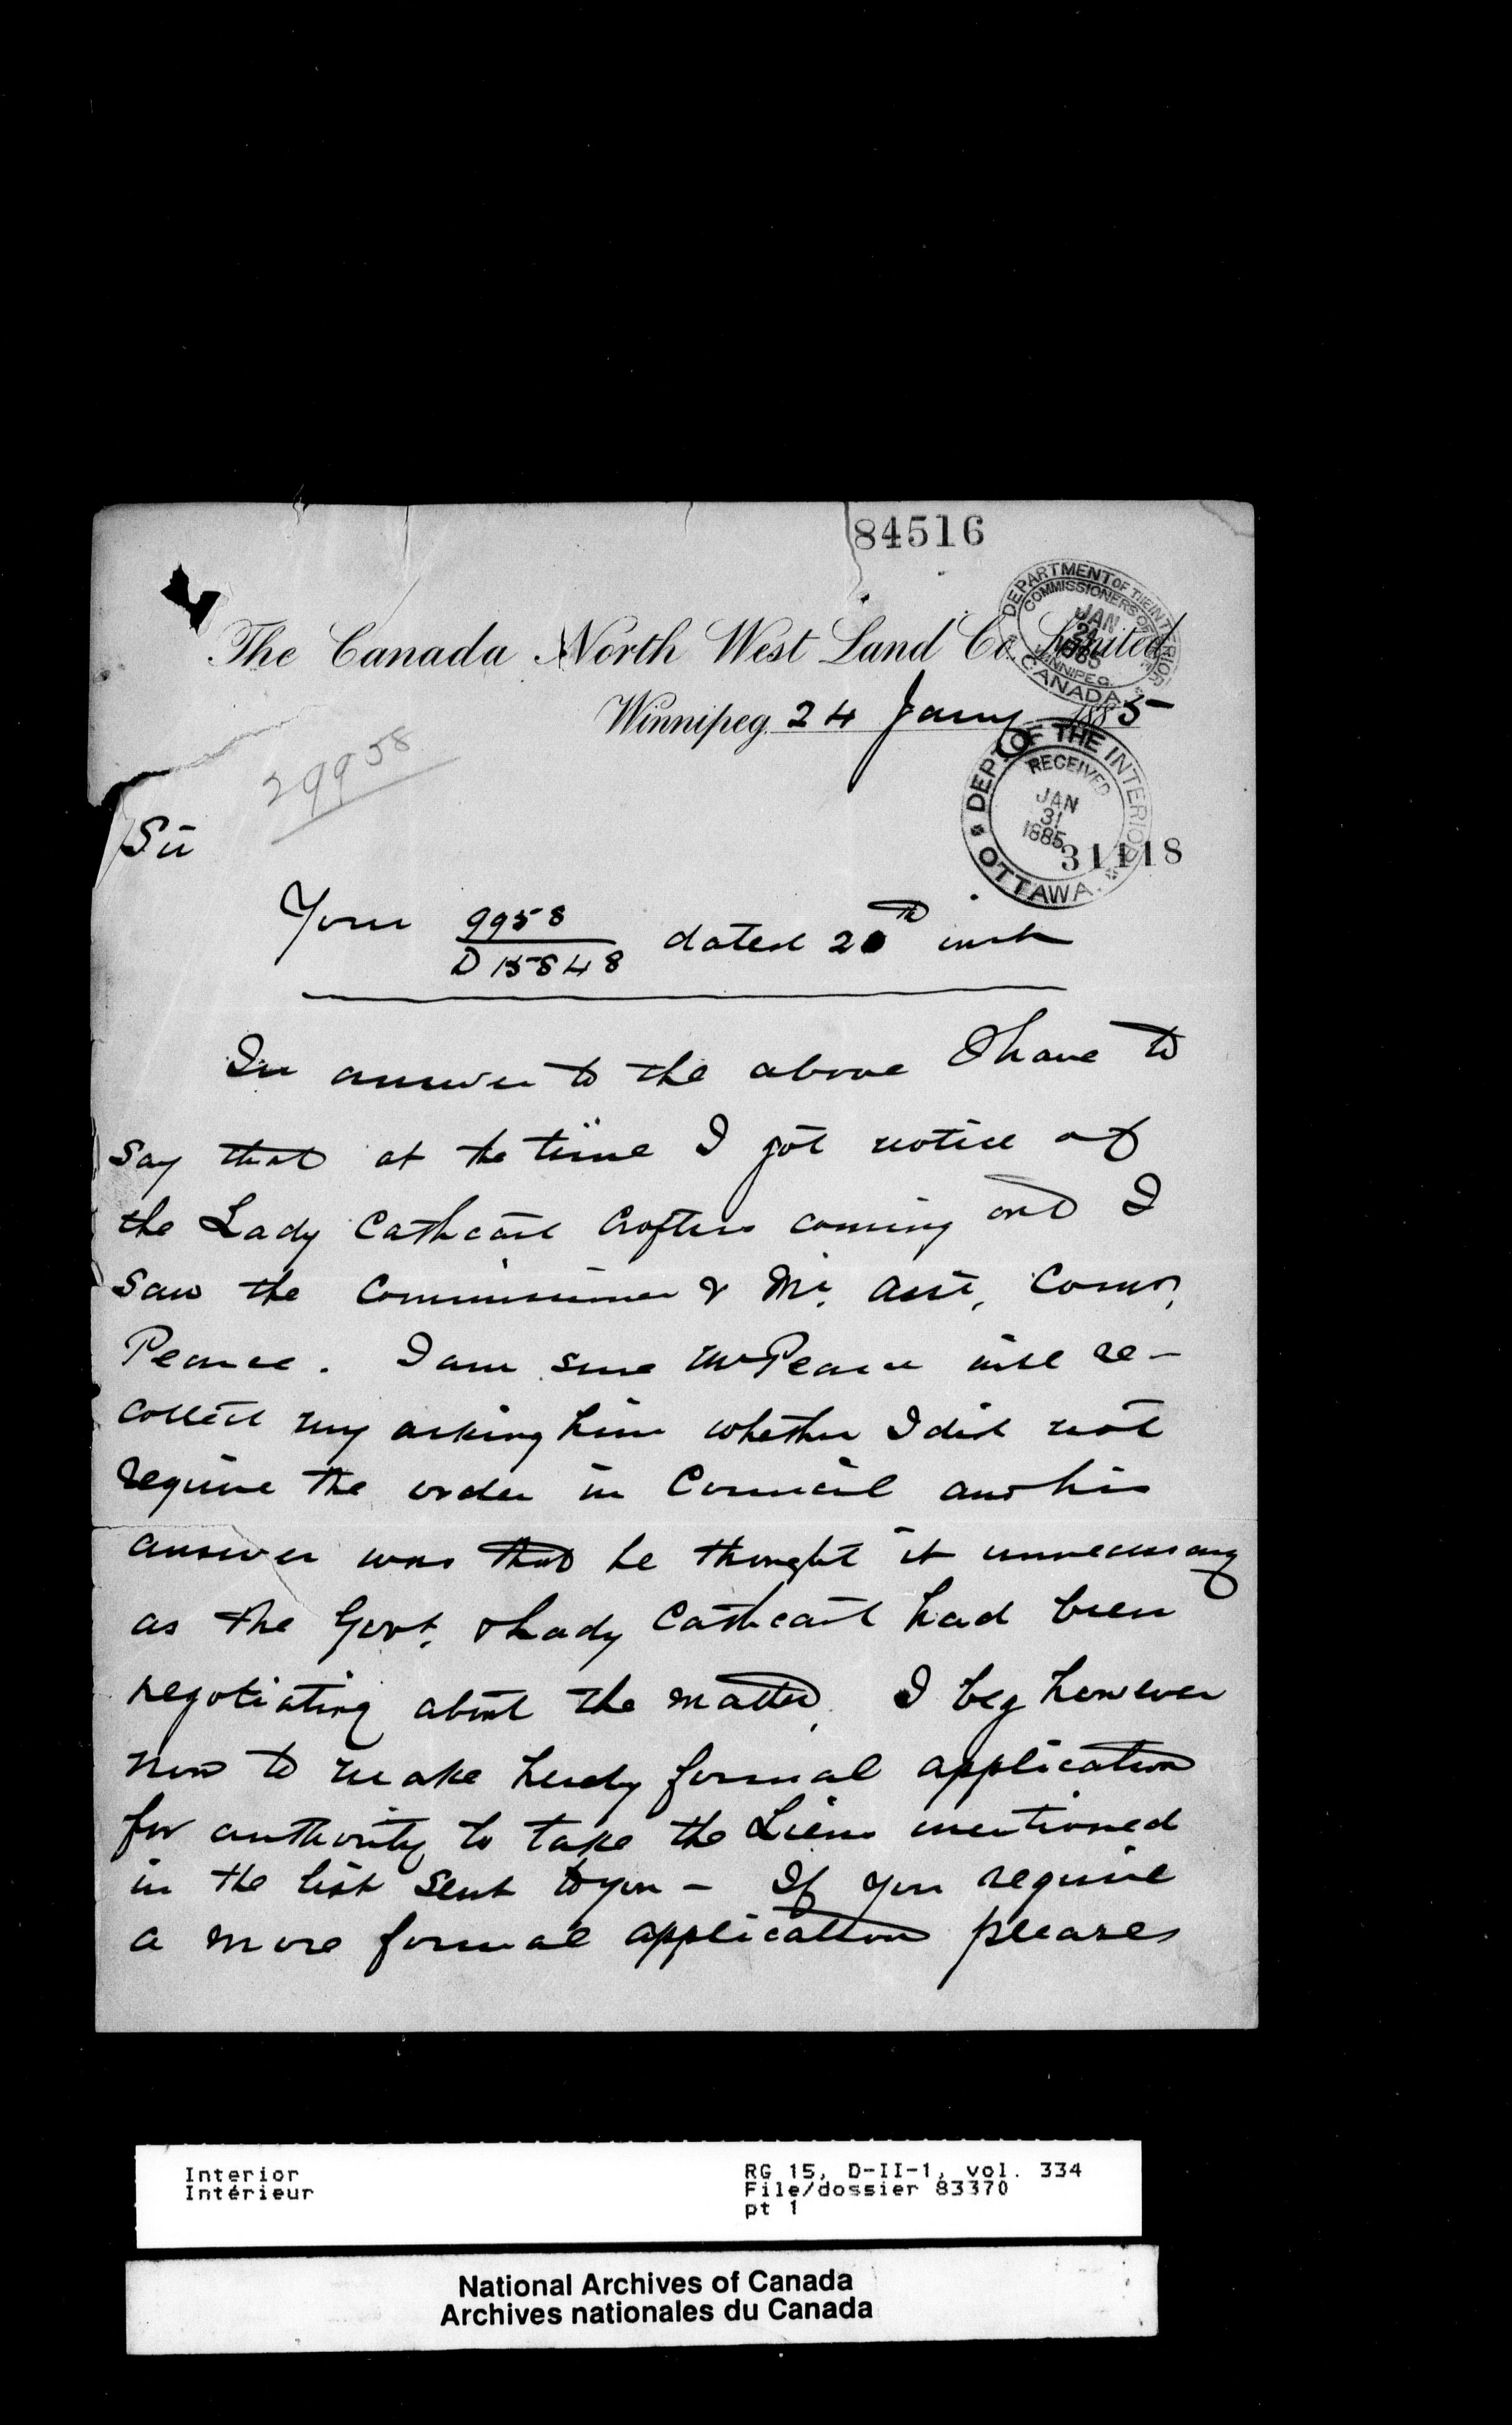 84516
DEPARTMENT OF THE INTERIOR
COMMISSIONERS OFFICE
JAN 24 1885
WINNIPEG.
CANADA
The Canada North West Land Co. Limited
Winnipeg. 24 Jany 1885
29958
DEPT OF THE INTERIOR
RECEIVED
JAN 31 1885
OTTAWA.
31118
Sir
Your 9958 / D 15848 dated 20th inst
In answer to the above I have to
say that at the time I got notice of
the Lady Cathcart Crofters coming out I
saw the Commissioner & Mr. Asst, Comr,
Pearce. I am sure Mr Pearce will re-
collect my asking him whether I did not
require the order in Council and his
answer was that he thought it unnecessary
as the Govt. & Lady Cathcart had been
negotiating about the matter. I beg however
now to make hereby formal application
for authority to take the Liens mentioned
in the list sent to you - If you require
a more formal application please
Interior
Intérieur
RG 15, D-II-1, vol. 334
File/dossier 83370
pt 1
National Archives of Canada
Archives nationales du Canada